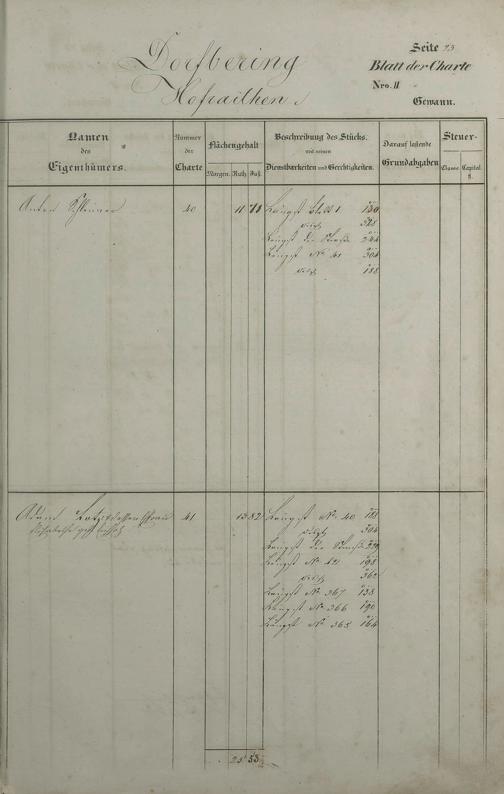 Dorfbering
Seite 23
Blatt der Charte
Hofraithen.
Nro. II
Gewann.
Namen des Eigenthümers.
Nummer der Charte
Flächengehalt
Morgen. Ruth. Fuß.
Beschreibung des Stücks.
mit seinen
Dienstbarkeiten und Gerechtigkeiten.
Darauf lastende Grundabgaben
Steuer-
Classe Capital
fl.
Anton 40 11 78 Längst 130
328
Längst der Straße 244
Längst No 41 304
188
Adam 41 13 82 Längst No 40 188
304
Längst der Straße
Längst No 42 198
362
Längst No 367 138
Längst No 366 190
Längst No 365 164
25 53